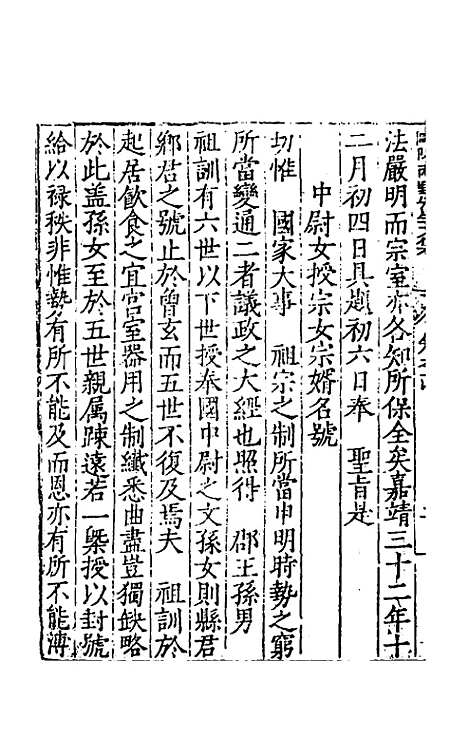 法嚴明而宗室亦各知所保全矣嘉靖三十二年十
二月初四日具題初六日奉　聖旨是
中尉女授宗女宗婿名號
切惟　國家大事　祖宗之制所當申明時勢之窮
所當變通二者議政之大經也照得　郡王孫男
祖訓有六世以下世授奉國中尉之文孫女則縣君
鄉君之號止於曾玄而五世不復及焉夫　祖訓於
起居飲食之宜宮室器用之制纖悉曲盡豈獨缺略
於此盖孫女至於五世親属踈遠若一槩授以封號
給以禄秩非惟勢有所不能及而恩亦有所不能溥